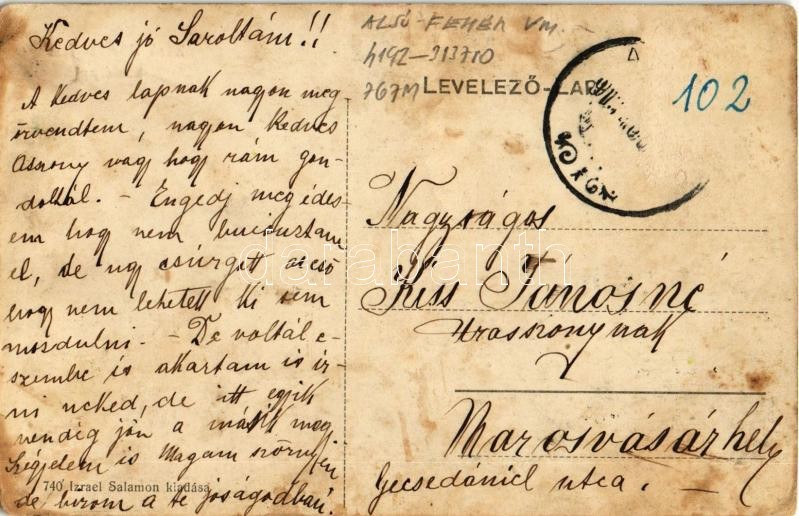 Kedves jó Saroltám!!
A Kedves lapnak nagyon meg
örvendtem, nagyon kedves
Asszony vagy hogy rám gon-
doltál. - Engedj meg édes-
em hogy nem bucsuztam
el, de ugy csúrgott az eső
hogy nem lehetett ki sem
mozdulni. - De voltál e-
szembe is akartam is ir-
ni neked, de itt egyik
vendég jön a másik megy
Szégyelem is Magam szörnyen
de bizom a te jóságodban.
740 Izrael Salamon kiadása
ALSÓ-FEHÉR VM.
4192-313710
767M
LEVELEZŐ-LAP
102
Nagyságos
Kiss Jánosné
Urasszonynak
Marosvásárhely
Gecsedániel utca.
darabanth